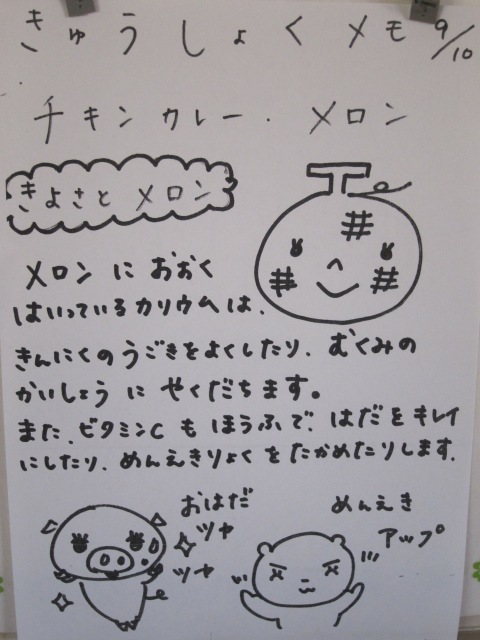 きゅうしょくメモ 9/10
チキンカレー．メロン
きよさとメロン
メロンにおおく
はいっているカリウムは、
きんにくのうごきをよくしたり、むくみの
かいしょうにやくだちます。
また、ビタミンCもほうふで、はだをキレイ
にしたり、めんえきりょくをたかめたりします。
おはだ
ツヤ
ツヤ
めんえき
アップ